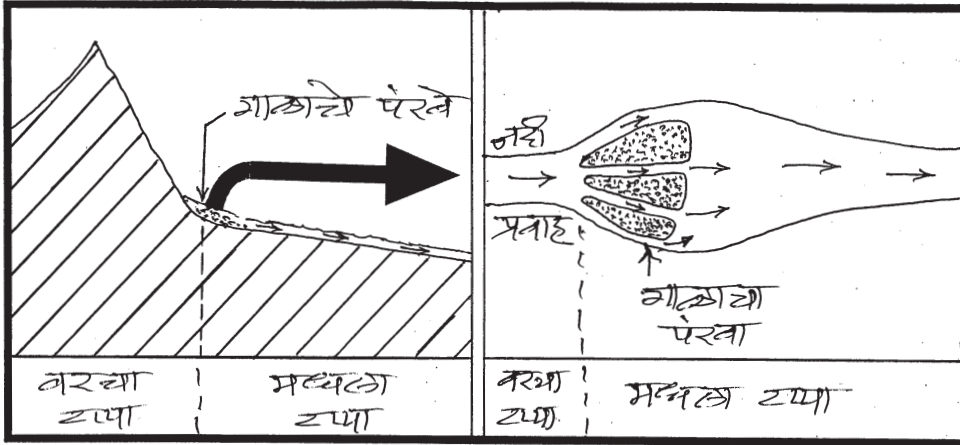 गाळाचे पंखे
वरचा टप्पा
मधला टप्पा
नदी
प्रवाह
गाळाचा
पंखा
वरचा टप्पा
मधला टप्पा